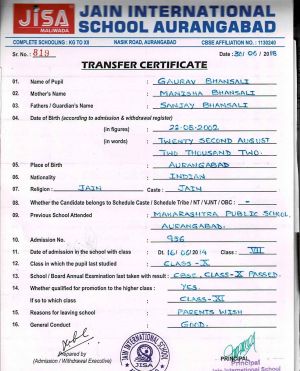 JISA
MALIWADA
JAIN INTERNATIONAL
SCHOOL AURANGABAD
COMPLETE SCHOOLING : KG TO XII NASIK ROAD, AURANGABAD CBSE AFFILIATION NO.: 1130240
Sr. No. : 819 Date : 30/06/2018
TRANSFER CERTIFICATE
01. Name of Pupil : GAURAV BHANSALI
02. Mother's Name : MANISHA BHANSALI
03. Fathers / Guardian's Name : SANJAY BHANSALI
04. Date of Birth (according to admission & withdrawal register)
(in figures) : 22-08-2002
(in words) : TWENTY SECOND AUGUST
TWO THOUSAND TWO.
05. Place of Birth : AURANGABAD
06. Nationality : INDIAN
07. Religion : JAIN Caste : JAIN
08. Whether the Candidate belongs to Schedule Caste / Schedule Tribe / NT / VJNT / OBC : -
09. Previous School Attended : MAHARASHTRA PUBLIC SCHOOL,
AURANGABAD.
10. Admission No. : 936
11. Date of admission in the school with class : Dt. 16/06/2014 Class : VII
12. Class in which the pupil last studied : CLASS-X
13. School / Board Annual Examination last taken with result : CBSE, CLASS-X PASSED.
14. Whether qualified for promotion to the higher class : YES.
If so to which class : CLASS-XI
15. Reasons for leaving school : PARENTS WISH
16. General Conduct : GOOD.
Prepared by
(Admission / Withdrawal Executive)
JAIN INTERNATIONAL SCHOOL
JISA
PRINCIPAL
Principal
Jain International School